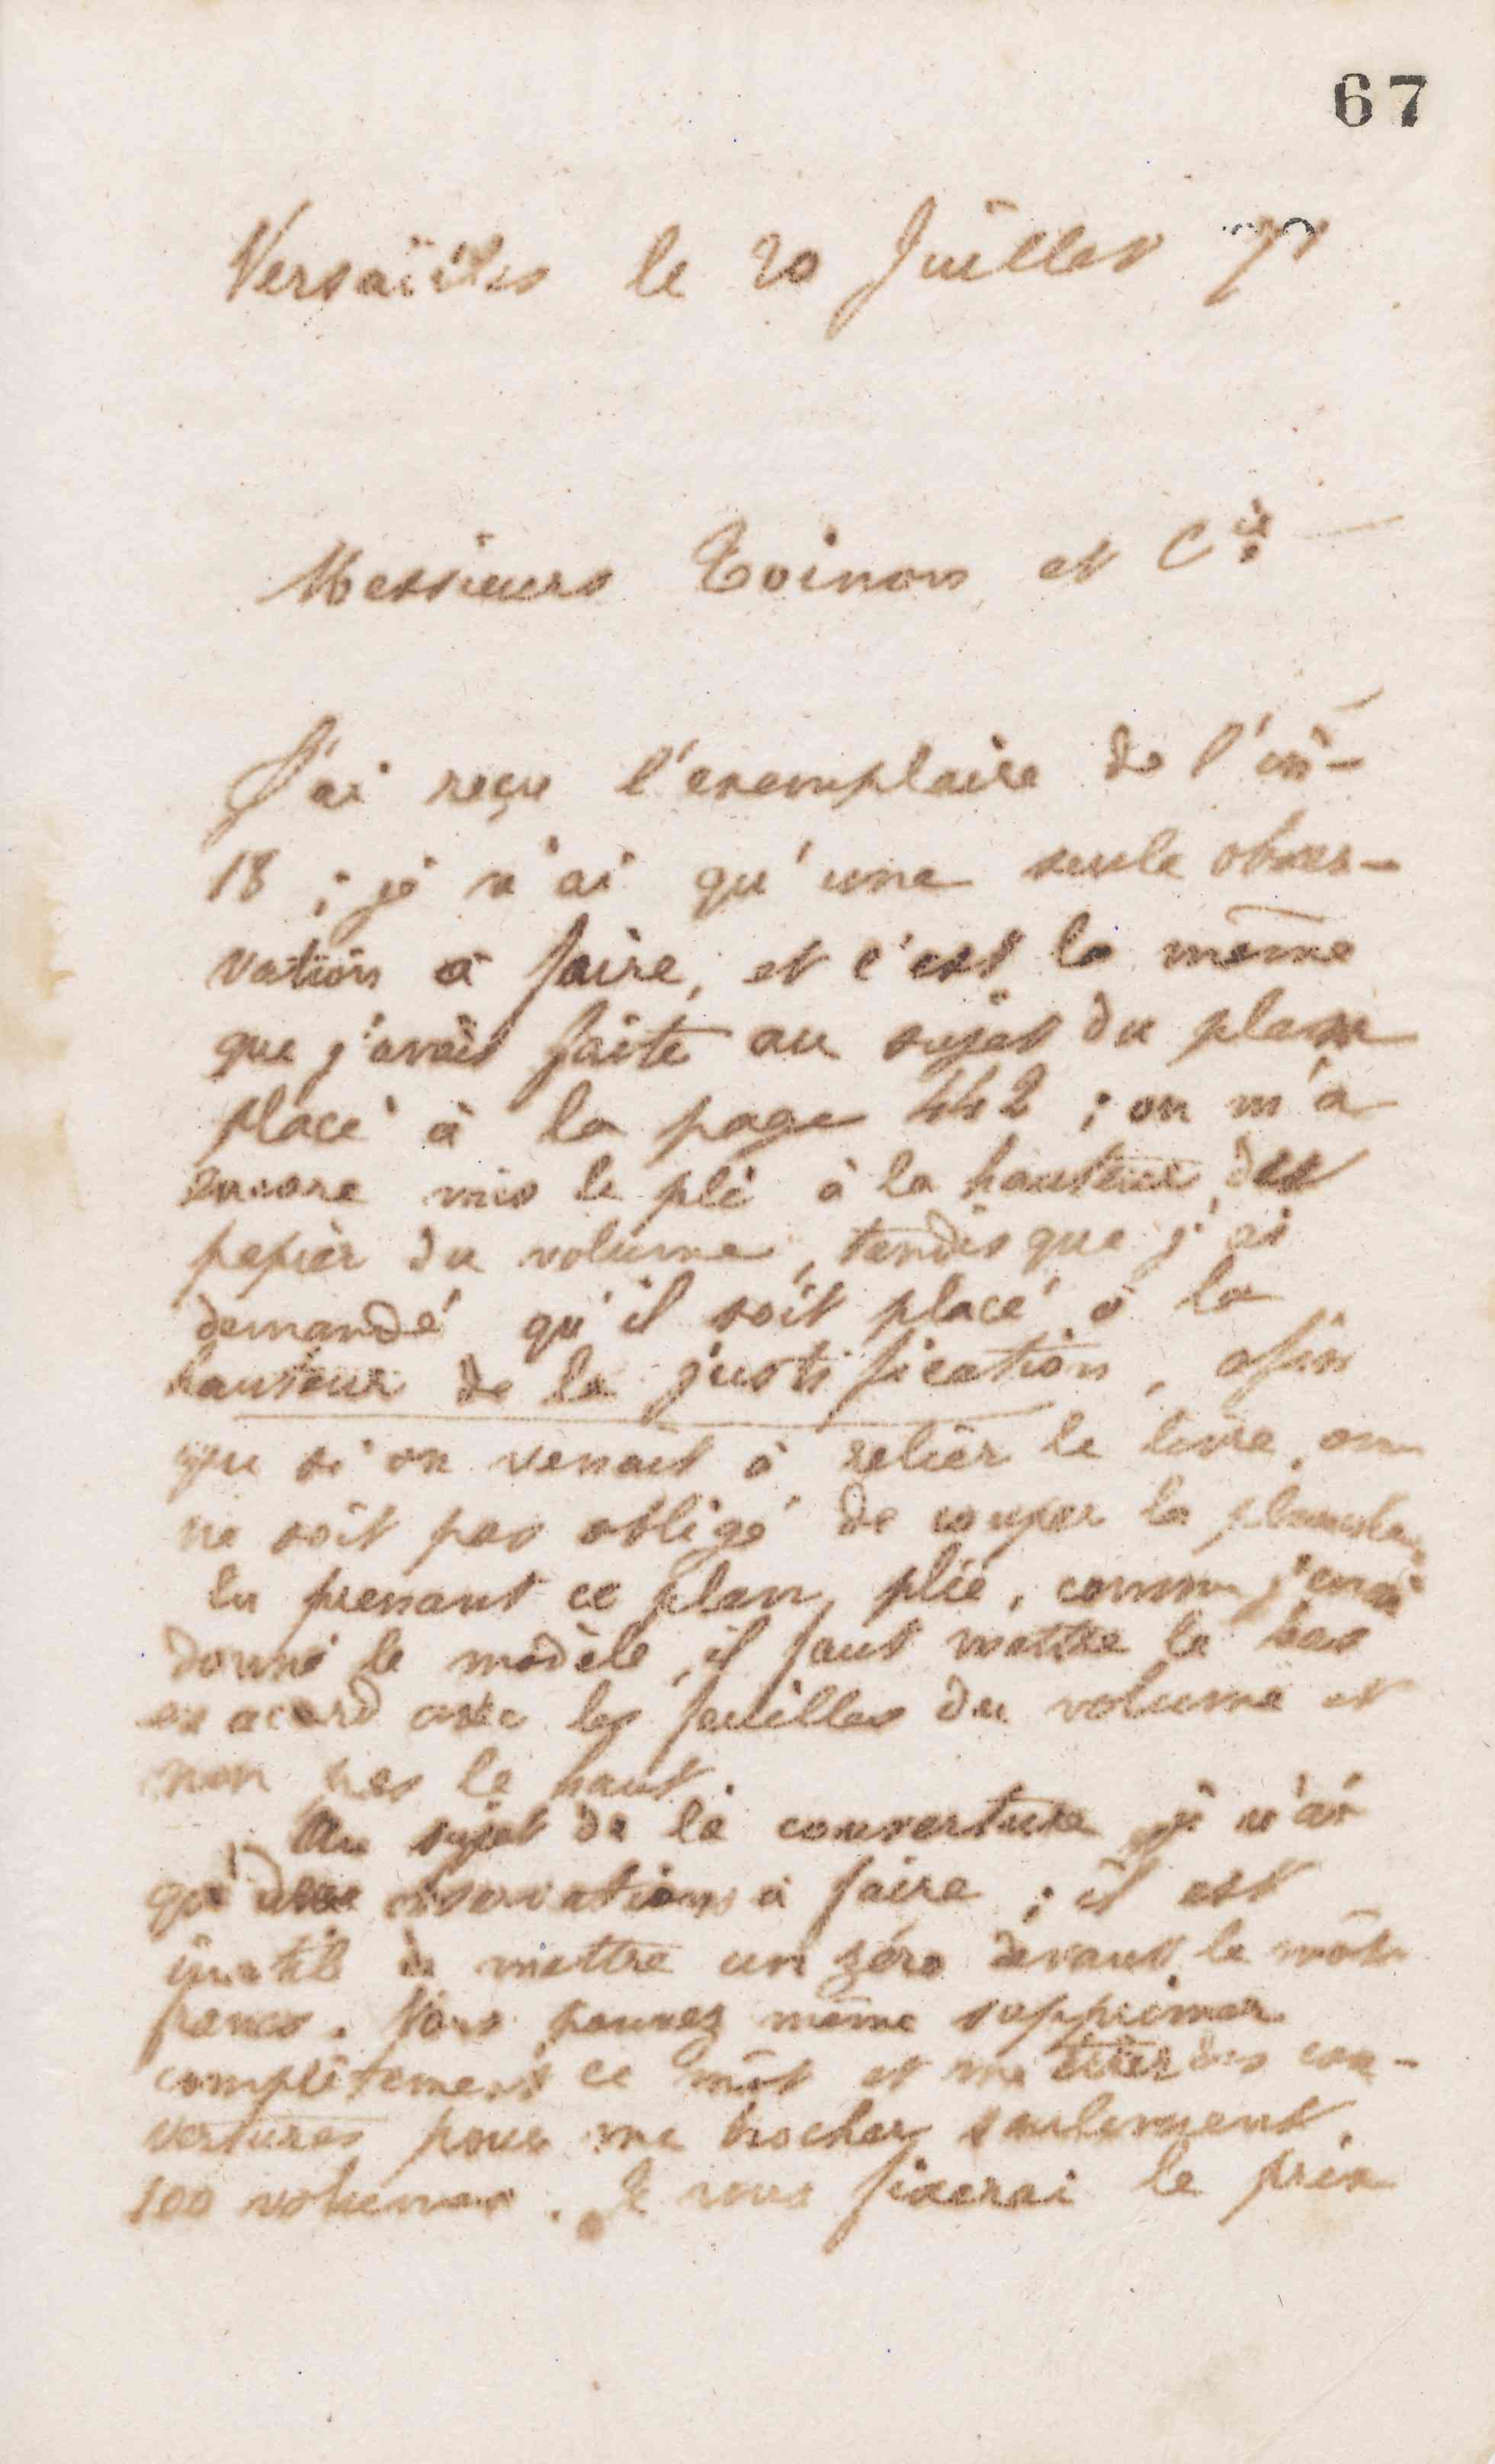 67
Versailles le 20 Juillet 71
Messieurs Toinon et Cie
J'ai reçu l'exemplaire de l'in-
18 ; je n'ai qu'une seule obser-
vation à faire, et c'est la même
que j'avais faite au sujet du plan
placé à la page 442 ; on m'a
encore mis le pli à la hauteur du
papier du volume, tandis que j'ai
demandé qu'il soit placé à la
hauteur de la justification, afin
que si on venait à relier le livre, on
ne soit pas obligé de couper la planche.
En prenant ce plan, plié, comme j'en ai
donné le modèle, il faut mettre le bas
en acord avec les feuilles du volume et
non pas le haut.
Au sujet de la couverture je n'ai
qu'une observation à faire ; il est
inutile de mettre un zéro devant le mot
francs. Vous pouvez même supprimer
complètement ce mot et me tirer des cou-
vertures pour me brocher seulement
100 volumes. Je vous fixerai le prix